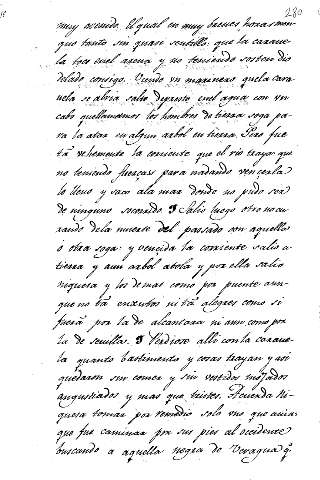 280
muy crecido. El qual en muy breves horas men
guo tanto sin quasi sentillo, que la carave
la toco en el arena y no teniendo sostendio
de lado consigo. Viendo un marinero que la cara
vela se abria salto de presto en el agua con un
cabo que llamamos los hombres de tierra soga pa
ra la atar en algun arbol en tierra. Pero fue
tã vehemente la corriente que el rio traya que
no teniendo fuerças para nadando vencerla
le llevo y saco a la mar donde no pudo ser
de ninguno socorrido. Salio luego otro no cu
rando de la muerte del passado con aquella
o otra soga: y vencida la corriente salio a
tierra y a un arbol atola y por ella salio
niquesa y los demas como por puente aun
que no tã enxutos ni tã alegres como si
fuerã por la de alcantara ni aun como por
la de sevilla. Perdiose alli con la carave
la quanto bastimento y cosas trayan y asi
quedaron sin comer y sin vestidos mojados
angustiados y mas que tristes. Acuerda Ni
quesa tomar por remedio solo uno que avia:
que fue caminar por sus pies al occidente
buscando a aquella negra de Veragua q.